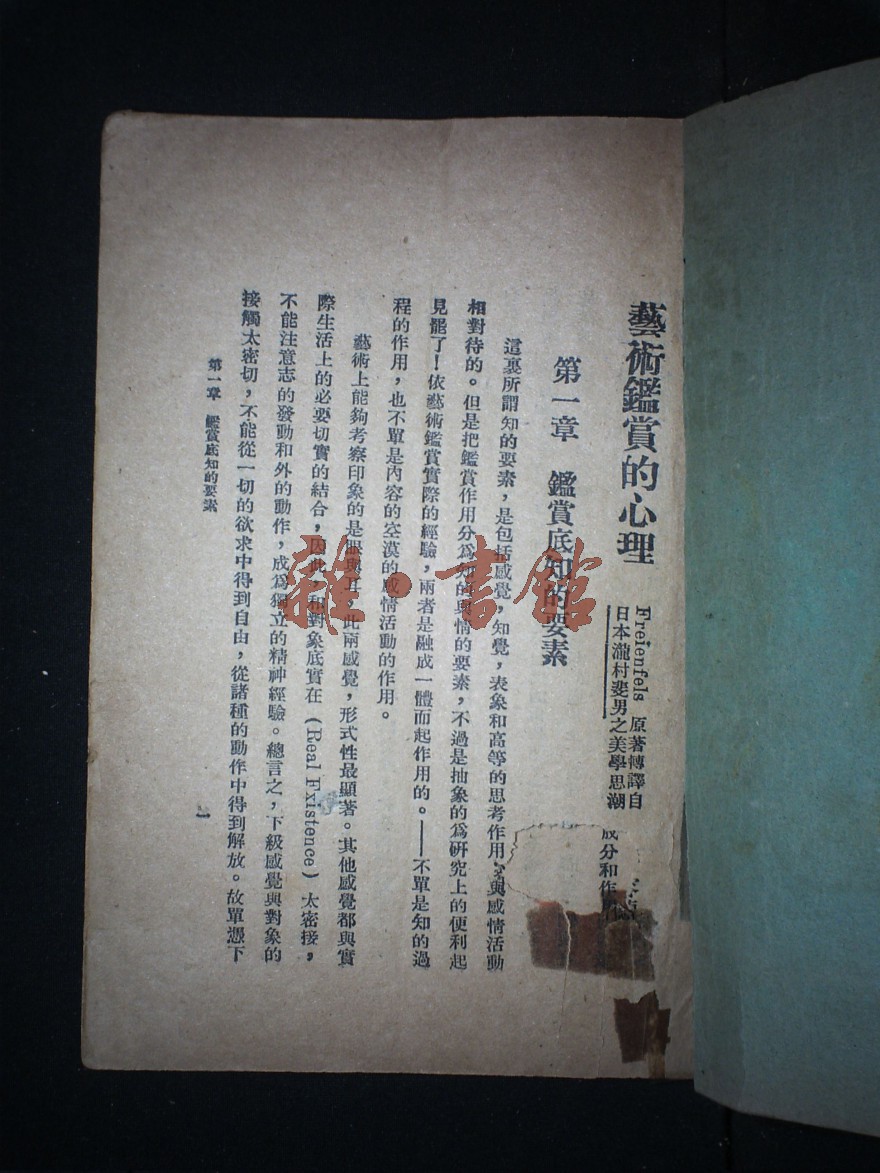 藝術鑑賞的心理
Freienfels 原著轉譯自
日本瀧村斐男之美學思潮
成分和作
第一章 鑑賞底知的要素
這裏所謂知的要素，是包括感覺，知覺，表象和高等的思考作用，與感情活動
相對待的。但是把鑑賞作用分爲知的與情的要素，不過是抽象的爲研究上的便利起
見罷了！依藝術鑑賞實際的經驗，兩者是融成一體而起作用的。——不單是知的過
程的作用，也不單是內容的空漠的感情活動的作用。
藝術上能夠考察印象的是眼與耳，此兩感覺，形式性最顯著。其他感覺都與實
際生活上的必要切實的結合，因此，和對象底實在（Real Existence）太密接，
不能注意志的發動和外的動作，成爲獨立的精神經驗。總言之，下級感覺與對象的
接觸太密切，不能從一切的欲求中得到自由，從諸種的動作中得到解放。故單憑下
第一章 鑑賞底知的要素
一
雜·書館